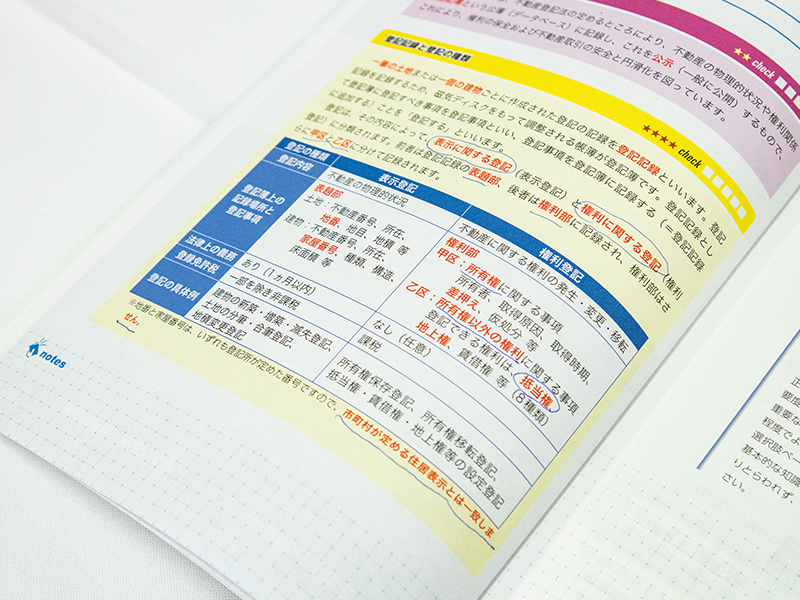 、不動産登記法の定めるところにより、不動産の物理的状況や権利関係
という公簿（データベース）に記録し、これを公示（一般に公開）するもので、
これにより、権利の保全および不動産取引の安全と円滑化を図っています。
★★ check
登記記録と登記の種類
★★★★ check
一筆の土地または一個の建物ごとに作成された登記の記録を登記記録といいます。登記
記録を記録するため、磁気ディスクをもって調製される帳簿が登記簿です。登記記録とし
て登記簿に登記すべき事項を登記事項といい、登記事項を登記簿に記録する（＝登記記録
に追加する）ことを「登記する」といいます。
登記は、その内容によって表示に関する登記（表示登記）と権利に関する登記（権利
登記）に分類されます。前者は登記記録の表題部、後者は権利部に記録され、権利部はさ
らに甲区・乙区に分けて記録されます。
登記の種類 表示登記 権利登記
登記内容 不動産の物理的状況 不動産に関する権利の発生・変更・移転
登記簿上の
記録場所と
登記事項
表題部
土地：不動産番号、所在、
地番、地目、地積 等
建物：不動産番号、所在、
家屋番号、種類、構造、
床面積 等
権利部
甲区：所有権に関する事項
所有者、取得原因、取得時期、
差押え、仮処分 等
乙区：所有権以外の権利に関する事項
登記できる権利は、抵当権、
地上権、賃借権 等（8種類）
法律上の義務 あり（1ヵ月以内） なし（任意）
登録免許税 一部を除き非課税 課税
登記の具体例
建物の新築・増築・滅失登記、
土地の分筆・合筆登記、
地積変更登記
所有権保存登記、所有権移転登記、
抵当権・賃借権・地上権等の設定登記
※地番と家屋番号は、いずれも登記所が定めた番号ですので、市町村が定める住居表示とは一致しま
せん。
notes
程度でよ
選択肢ペー
基本的な知識
りとらわれず、
さい。